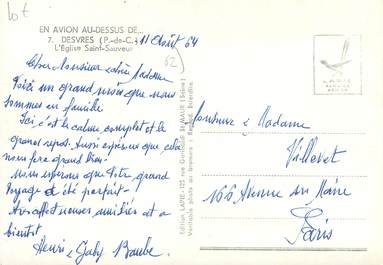 lot
EN AVION AU-DESSUS DE...
7. DESVRES (P.-de-C.)
L'Église Saint-Sauveur
11 Août 64
62
Cher Monsieur chère Madame
Voici un grand mois que nous
sommes en famille
Ici c'est le calme complet et le
grand repos. Aussi espérons que cela
nous fera grand bien.
nous espérons que votre grand
voyage a été parfait.
Nos affectueuses amitiés et a
bientôt
Henri et Gaby
Edition LAPIE - 125 rue Garibaldi St-MAUR (Seine)
Véritable photo au bromure - Reprod. Interdite
LAPIE
Monsieur & Madame
Villevet
166 Avenue du Maine
Paris